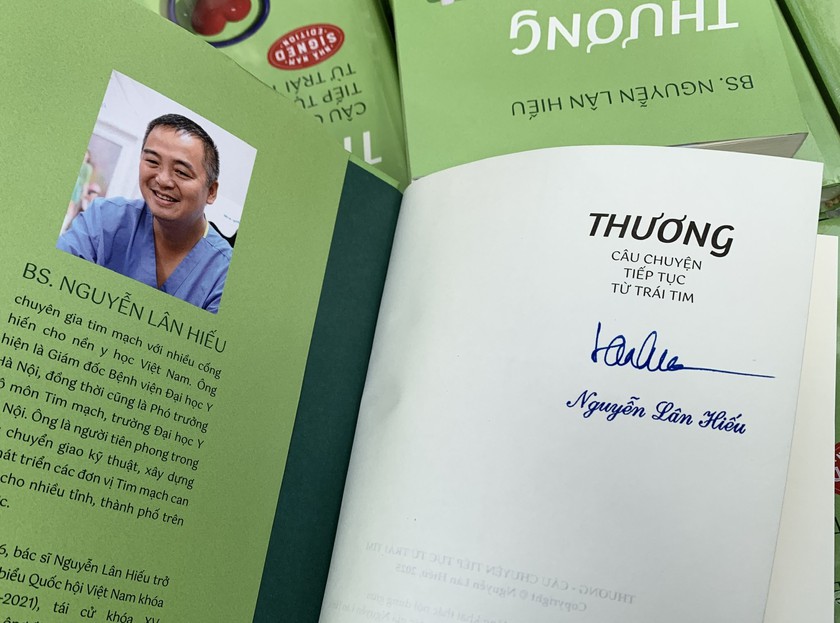 NHÃ NAM
SIGNED
EDITION
CÂU
TIẾP TỤ
TỪ TRÁI
TH
THƯƠNG
BS. NGUYỄN LÂN HIẾU
BS. NGUYỄN LÂN HIẾU
chuyên gia tim mạch với nhiều cống
hiến cho nền y học Việt Nam. Ông
hiện là Giám đốc Bệnh viện Đại học Y
Hà Nội, đồng thời cũng là Phó trưởng
môn Tim mạch, trường Đại học Y
Nội. Ông là người tiên phong trong
chuyển giao kỹ thuật, xây dựng
phát triển các đơn vị Tim mạch can
cho nhiều tỉnh, thành phố trên
6, bác sĩ Nguyễn Lân Hiếu trở
biểu Quốc hội Việt Nam khóa
-2021), tái cử khóa XV
THƯƠNG
CÂU CHUYỆN
TIẾP TỤC
TỪ TRÁI TIM
Nguyễn Lân Hiếu
THƯƠNG - CÂU CHUYỆN TIẾP TỤC TỪ TRÁI TIM
Copyright © Nguyễn Lân Hiếu, 2025